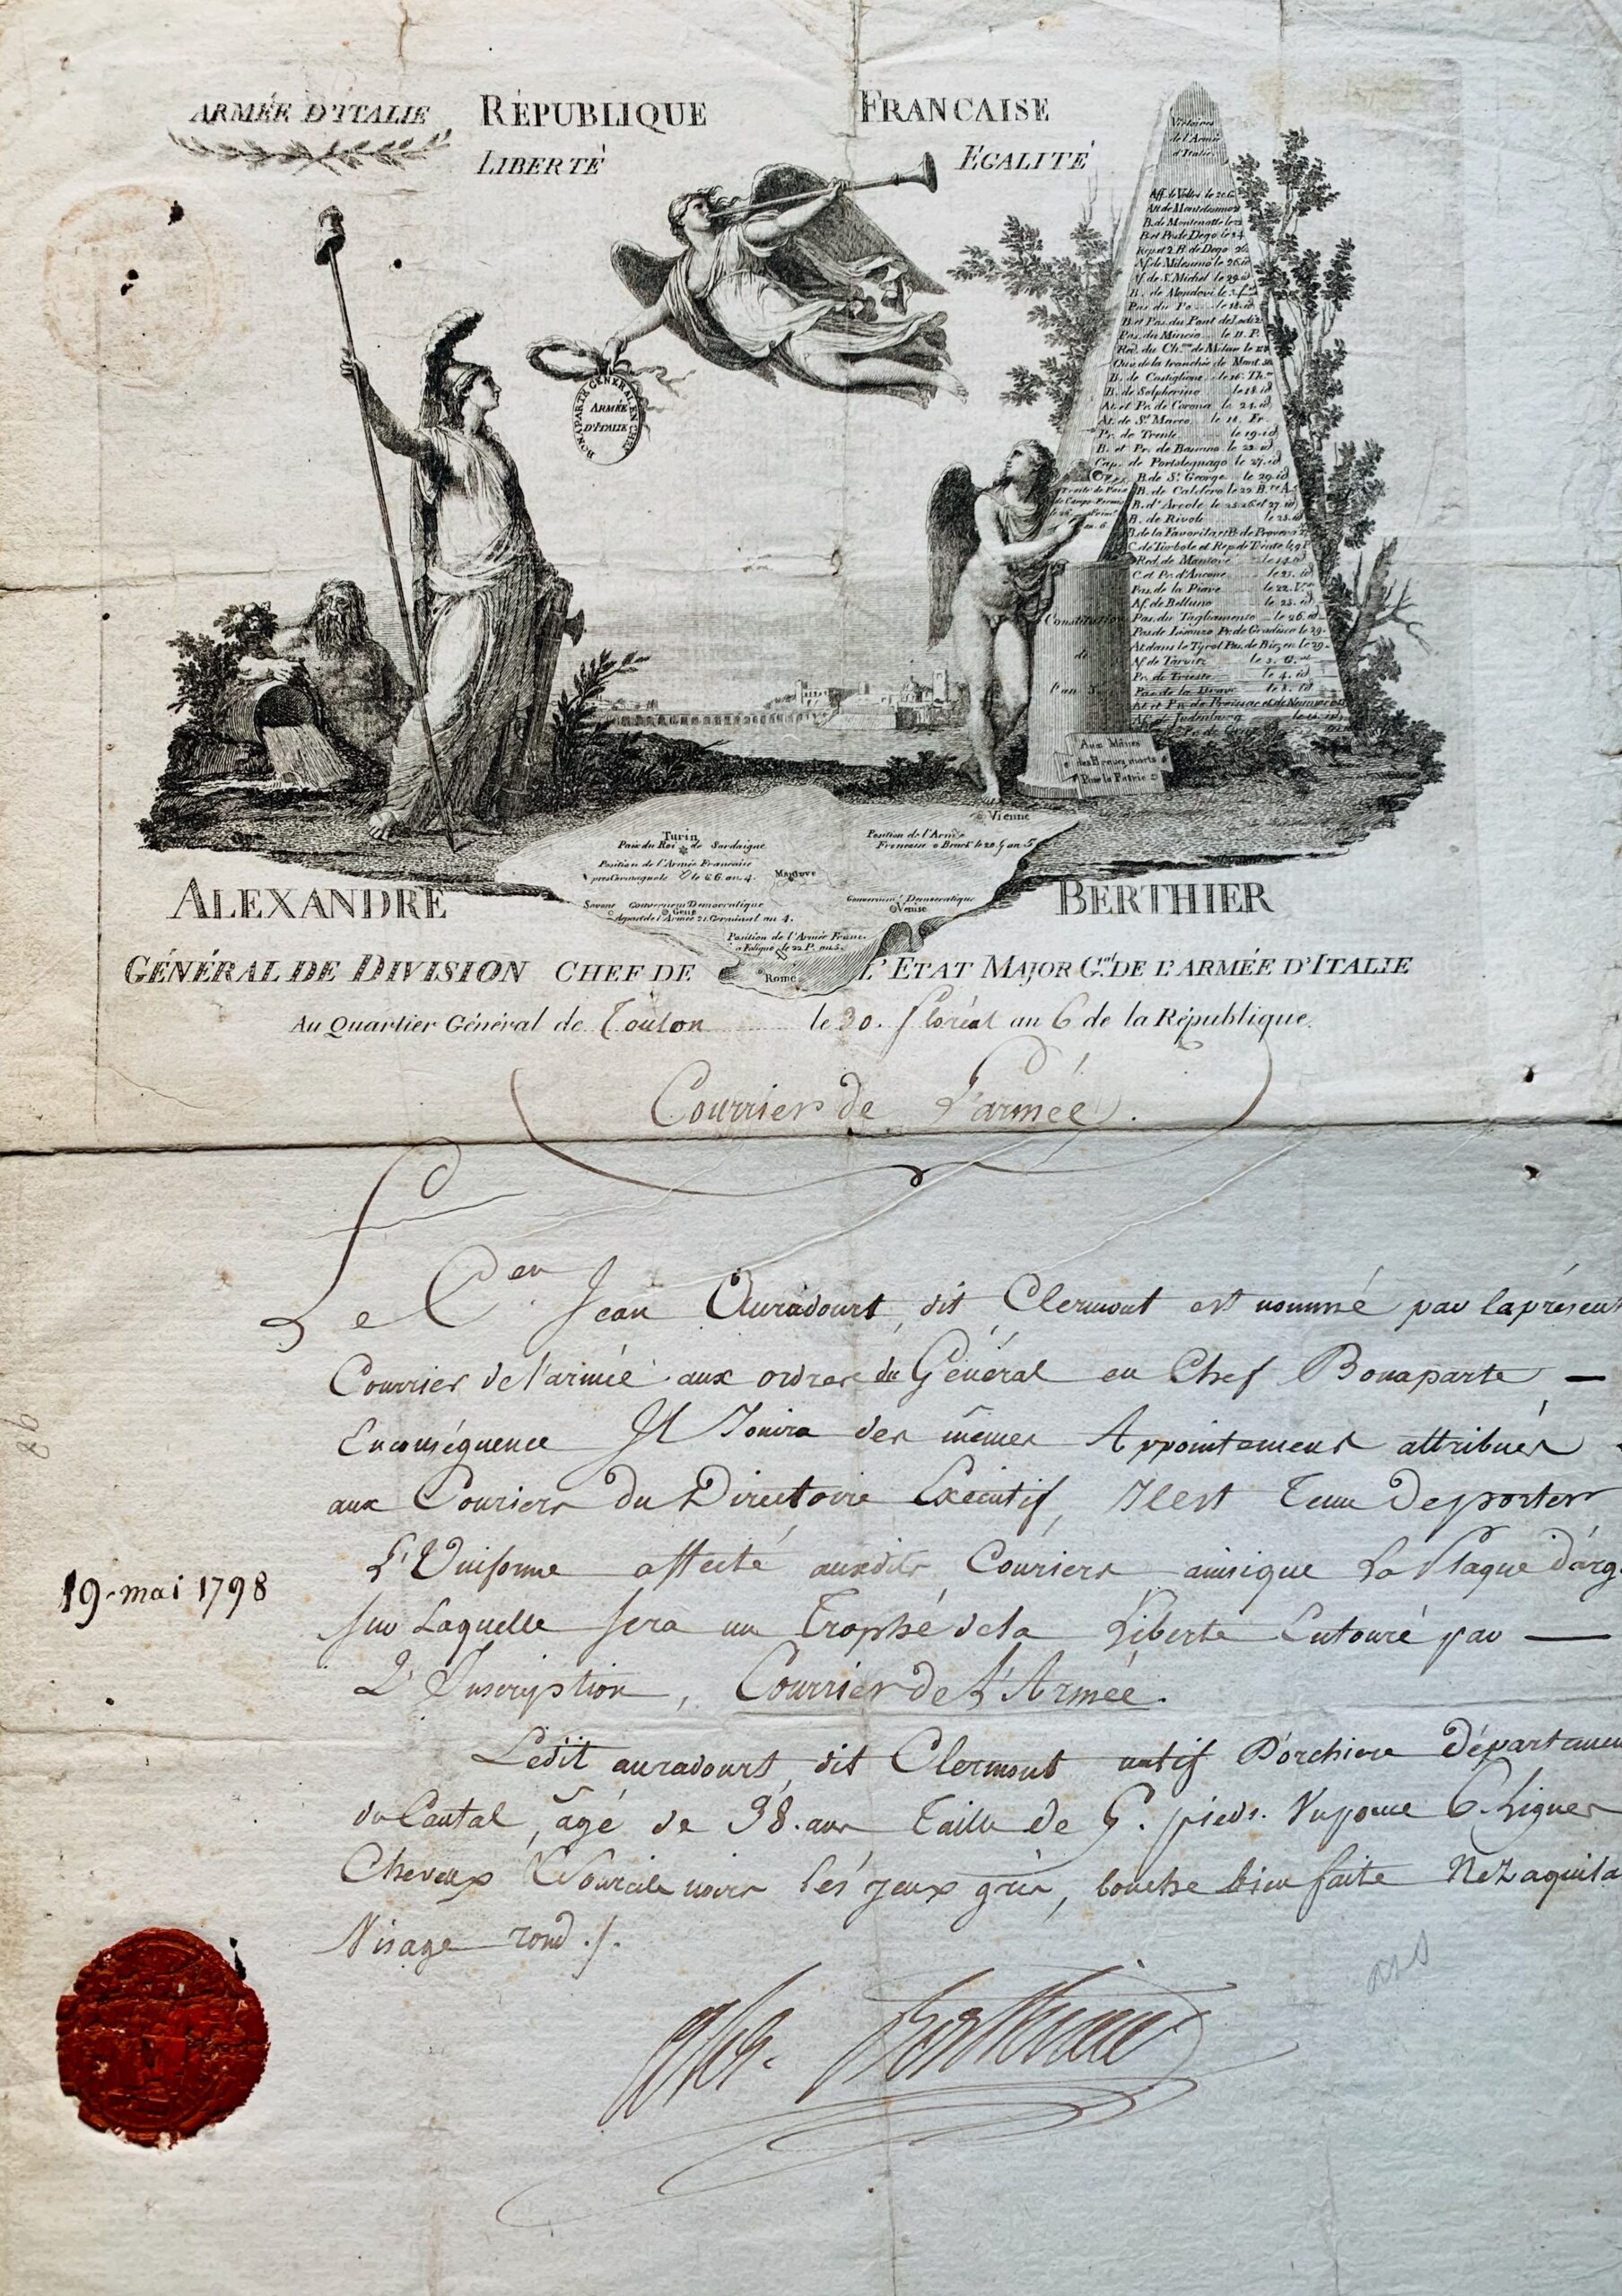 ARMÉE D'ITALIE RÉPUBLIQUE FRANCAISE
LIBERTÉ EGALITÉ
BONAPARTE GÉNÉRAL EN CHEF
ARMÉE
D'ITALIE
Victoires
de l'Armée
d'Italie
Aff. de Voltri le
At. de Montelesimo
B. de Montenotte le
B. et Pr. de Dego le 24
Rep. et 2 B. de Dego 26
Af. de Milesimo le 26 id
Af. de St. Michel le 29 id
B. de Mondovi le
Pas. du Po le 18 id
B. et Pas. du Pont de Lodi
Pas. du Mincio le 11 P.
Red. du Ch.au de Milan le
Ouv. de la tranchée de Mant.
B. de Castiglione le 16 Th.
B. de Solpherino le 18 id
At. et Pr. de Corona le 24 id
At. de St. Marco le 11 Fr.
Pr. de Trente le 19 id
B. et Pr. de Bassano le 22 id
Cap. de Portolegnago le 27 id
B. de St. George le 29 id
B. de Caldero le 22 B.re A.5
B. d'Arcole le 25 26 et 27 id
B. de Rivoli le 25 id
B. de la Favorita et B. de Provera
C. de Torbole et Rep. de Trente le 9
Red. de Mantove le 14 id
C. et Pr. d'Ancone le 21 id
Pas. de la Piave le 22 V.se
Af. de Belluno le 23 id
Pas. du Tagliamento le 26 id
Pas. de Lisonzo Pr. de Gradisca le 29
At. dans le Tyrol Pas. de Bizen le 29
Af. de Tarviz le 2. G.
Pr. de Trieste le 4. id
Pas. de la Drave le 8. id
Af. de Judenburg
Traité de Paix
de Campo-Formio
le 26
an 6
Constitution
de
l'an 3
Aux Mânes
des Braves morts
Pour la Patrie
Vienne
Turin
Paix du Roi de Sardaigne
Position de l'Armée
Francaise a Bruck le 20 G an 5
Position de l'Armée Francaise
pres Carmagnole le 6 G. an 4.
Mantove
Savone Gouvernem.t Democratique
Gene
depart de l'Armée 21 Germinal an 4.
Gouvernem.t Democratique
Venise
Position de l'Armée Franc.
a Foligno le 22 P. an 5.
Rome
ALEXANDRE BERTHIER
GÉNÉRAL DE DIVISION CHEF DE L'ETAT MAJOR G.ral DE L'ARMÉE D'ITALIE
Au Quartier Général de Toulon le 30. floréal an 6 de la République.
Courrier de L'armée.
Le C.en Jean Auradourt, dit Clermont est nommé par la présent
Courrier de l'armée aux ordres du Général en Chef Bonaparte —
Enconséquence Il Jouira des mêmes Appointemens attribués
aux Couriers Du Directoire Exécutif, Il est Tenu De porter
L'Uniforme affecté auxdits Couriers ainsique La Plaque d'arg
sur Laquelle sera un Trophé de la Liberté Entouré par —
L'Inscription, Courrier de L'Armée.
19-mai 1798
Ledit auradourt, dit Clermont natif D'orchiere département
du Cantal, âgé de 38. ans Taille de 5. pieds. Un pouce 6. Lignes
Cheveux & Sourcils noirs les yeux gris, bouche bien faite Nez aquila
Visage rond ./.
Alex. Berthier